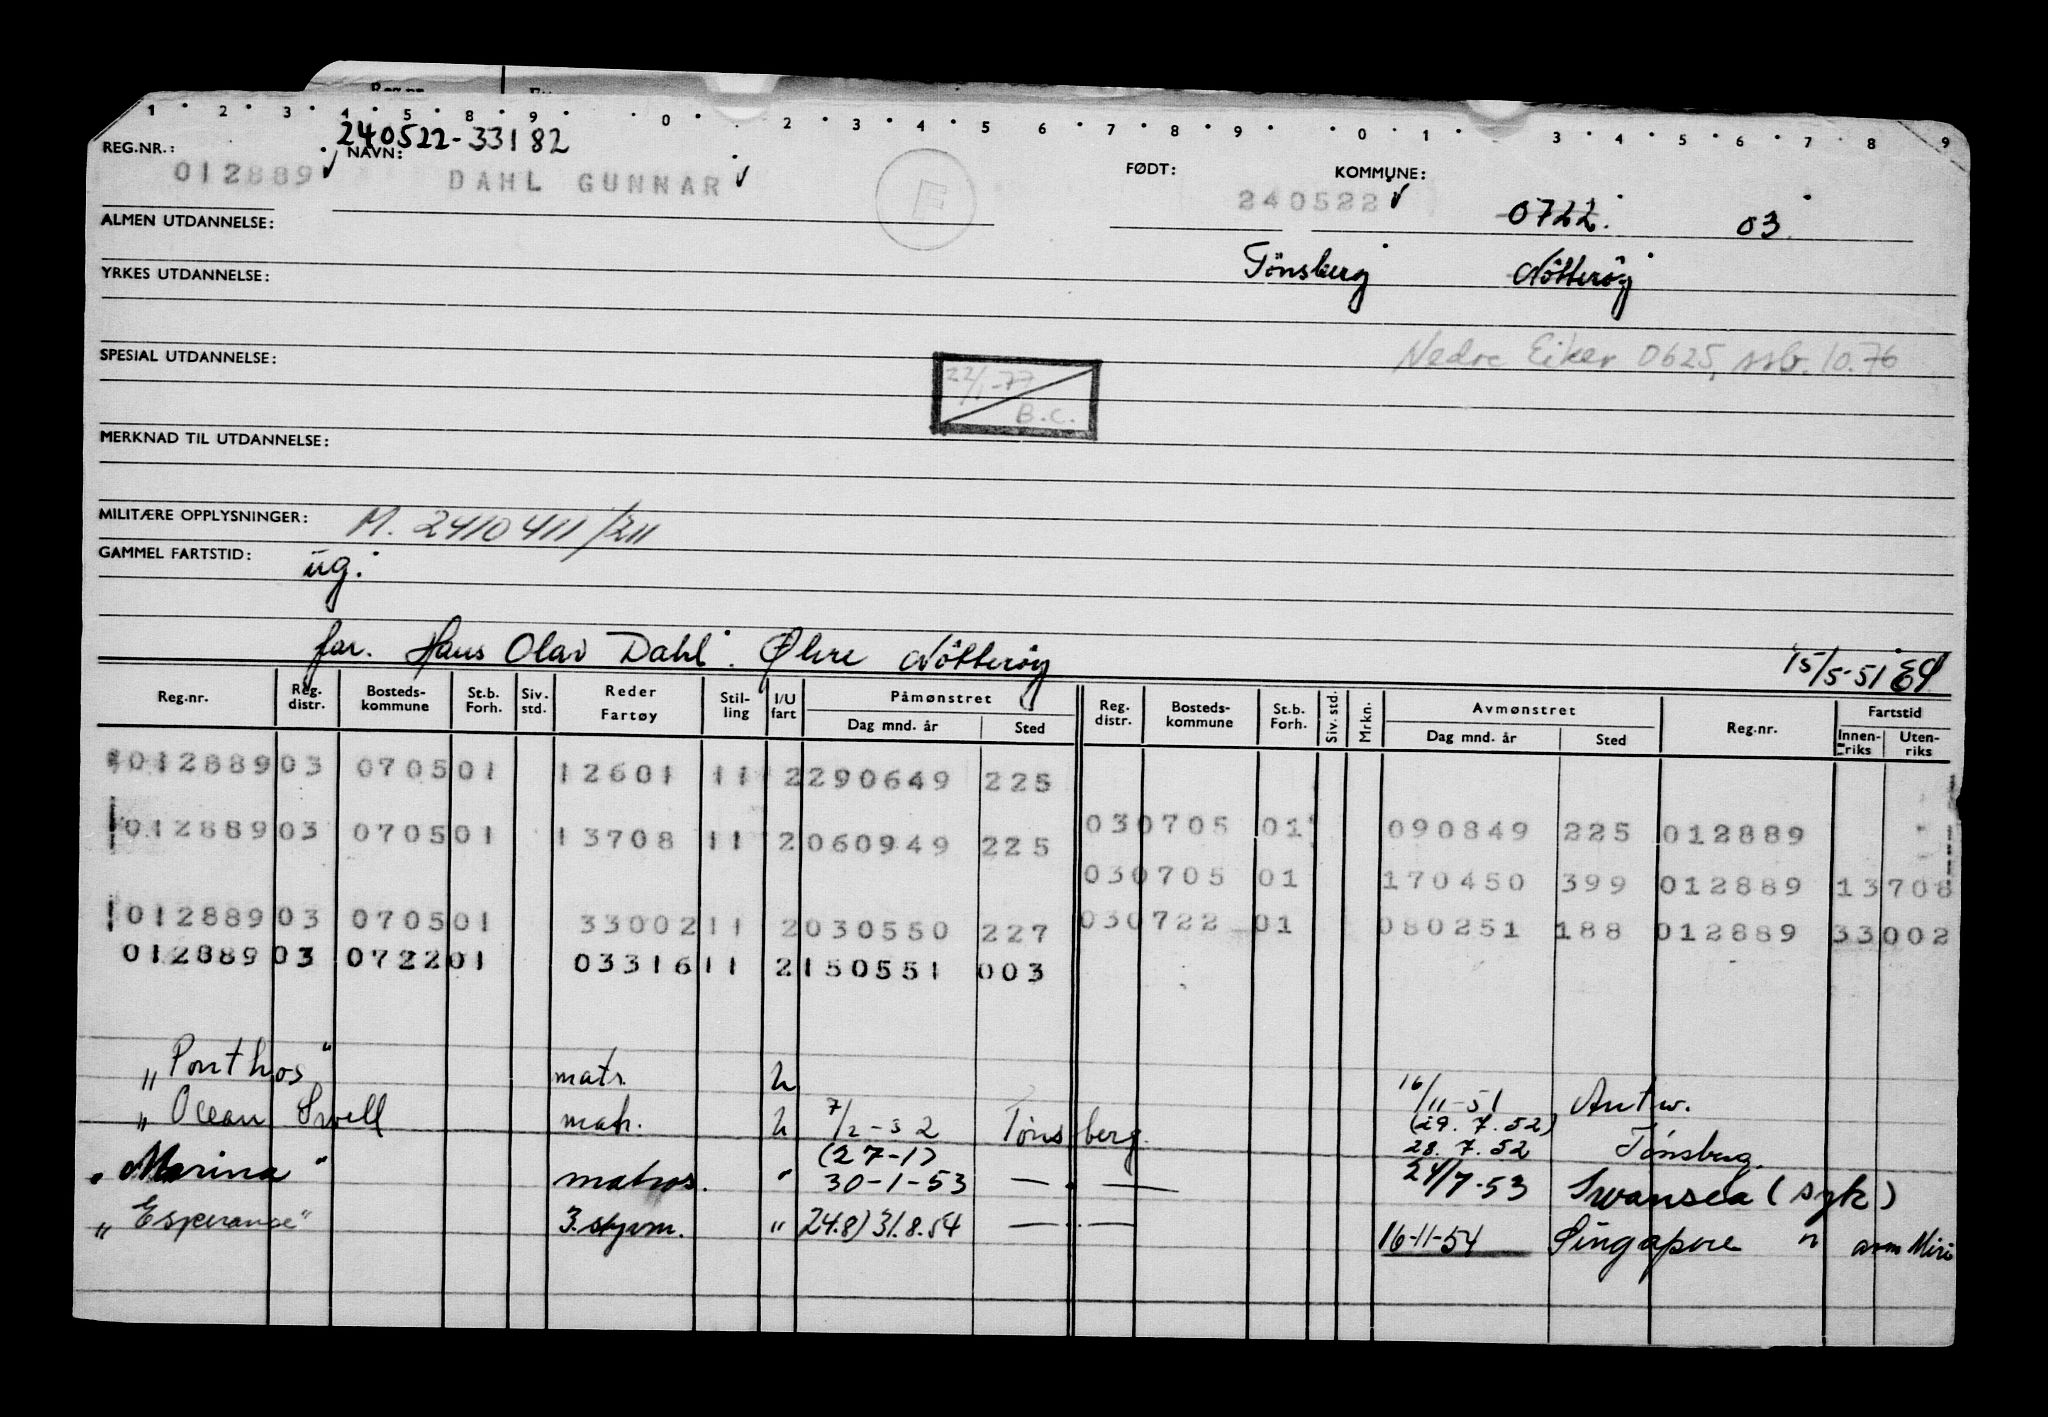 1 2 3 4 5 8 9 0 2 3 4 5 6 7 8 9 0 1 3 4 5 6 7 8 9
240522-33182
REG.NR.: NAVN: FØDT: KOMMUNE:
012889 DAHL GUNNAR E 240522 0722. 03
ALMEN UTDANNELSE:
Tönsberg Nötteröy
YRKES UTDANNELSE:
Nedre Eiker 0625, ssb. 10.76
SPESIAL UTDANNELSE:
22/1-77
B.C.
MERKNAD TIL UTDANNELSE:
MILITÆRE OPPLYSNINGER: M. 2410411/211
GAMMEL FARTSTID: ug.
far. Hans Olav Dahl. Ølvre Nötteröy 15/5-51
Reg.nr. Reg. distr. Bosteds-kommune St.b. Forh. Siv. std. Reder Fartøy Stil-ling I/U fart Påmønstret Dag mnd. år Sted Reg. distr. Bosteds-kommune St.b. Forh. Siv. std. Mrkn. Avmønstret Dag mnd. år Sted Reg.nr. Fartstid Innen-riks Uten-riks
012889 03 0705 01 12601 11 2 290649 225
03 0705 01 090849 225 012889
012889 03 0705 01 13708 11 2 060949 225
03 0705 01 170450 399 012889 13708
012889 03 0705 01 33002 11 2 030550 227 03 0722 01 080251 188 012889 33002
012889 03 0722 01 03316 11 2 150551 003
"Ponthos" matr. u 16/11-51 Antw.
"Ocean Swell matr. u 7/2-52 Tønsberg. (29.7.52)
28.7.52 Tønsberg.
(27-1)
"Marina" matros. " 30-1-53 — " — 24/7-53 Swansea (syk)
"Esperance" 3. styrm. " 24.8) 31.8.54 — " — 16-11-54 Singapore " avm Miri